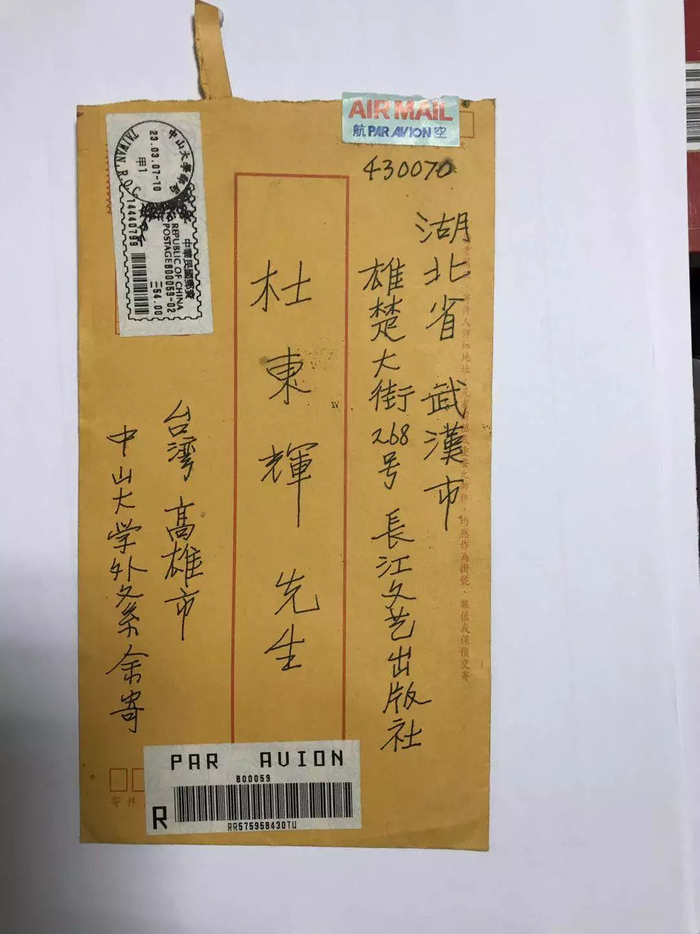 AIR MAIL
航 PAR AVION 空
430070
湖北省 武漢市
雄楚大街268号 長江文艺出版社
杜東輝 先生
台湾 高雄市
中山大学外文系余寄
中山大學郵局
23.03.07-10
甲1
TAIWAN, R.O.C.
14440799
中華民國郵資
REPUBLIC OF CHINA
POSTAGE 800059-02
54.00
PAR AVION
800059
R
RR575958430TW
寄件